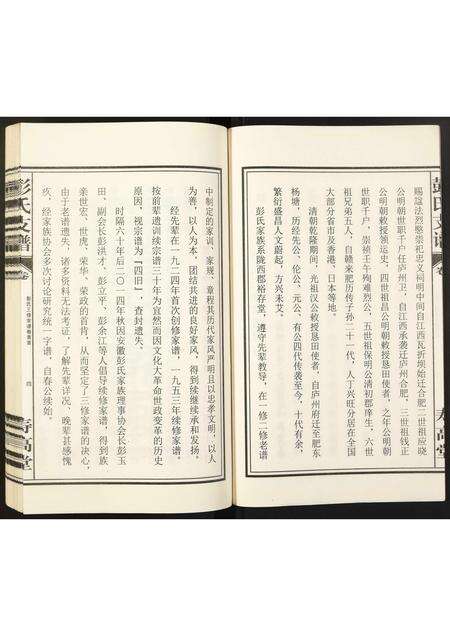 赐谥法烈愍崇祀忠义祠明中间自江西瓦折坝始迁合肥二世祖应晓
公明朝世职千户任庐州卫，自江西承袭迁庐州合肥，三世祖钱正
公明朝敕授领运史，四世祖昌公明朝敕授恳田使者，之年公明朝
世职千户，崇祯壬午殉难烈公，五世祖保明公清初郡庠生，六世
祖兄弟五人，自赣来肥历传子孙二十一代，人丁兴旺分居在全国
大部分省市及香港、日本等地。
清朝乾隆期间，光祖汉公敕授恳田使者，自庐州府迁至肥东
杨塘，历经先公、伦公、元公，有公四代传袭至今，十代有余，
繁衍盛昌人文蔚起，方兴未艾。
彭氏家族系陇西郡裕存堂，遵守先辈教导，在一修二修老谱
彭氏支谱
卷
寿高堂
中制定的家训、家规、章程其历代家风严明且以忠孝文明，以人
为善，以人为本，团结共进的良好家风，得到续继续承和发扬。
经先辈在一九二四年首次创修家谱，一九五三年续修家谱，
按前辈遗训续宗谱三十年为宜然而因文化大革命世政变革的历史
原因，视宗谱为「四旧」查封遗失。
时隔六十年后二〇一四年秋因安徽彭氏家族理事协会长彭玉
田、副会长彭洪才、彭立平、彭余江等人倡导续修家谱，得到族
亲世宏、世虎、荣华、荣政的首肯，从而坚定了三修家谱的决心，
由于老谱遗失，诸多资料无法考证，了解先辈详况，晚辈甚感愧
疚，经家族协会多次讨论研究统一字谱，自春公续始。
彭氏支谱
卷
四
寿高堂